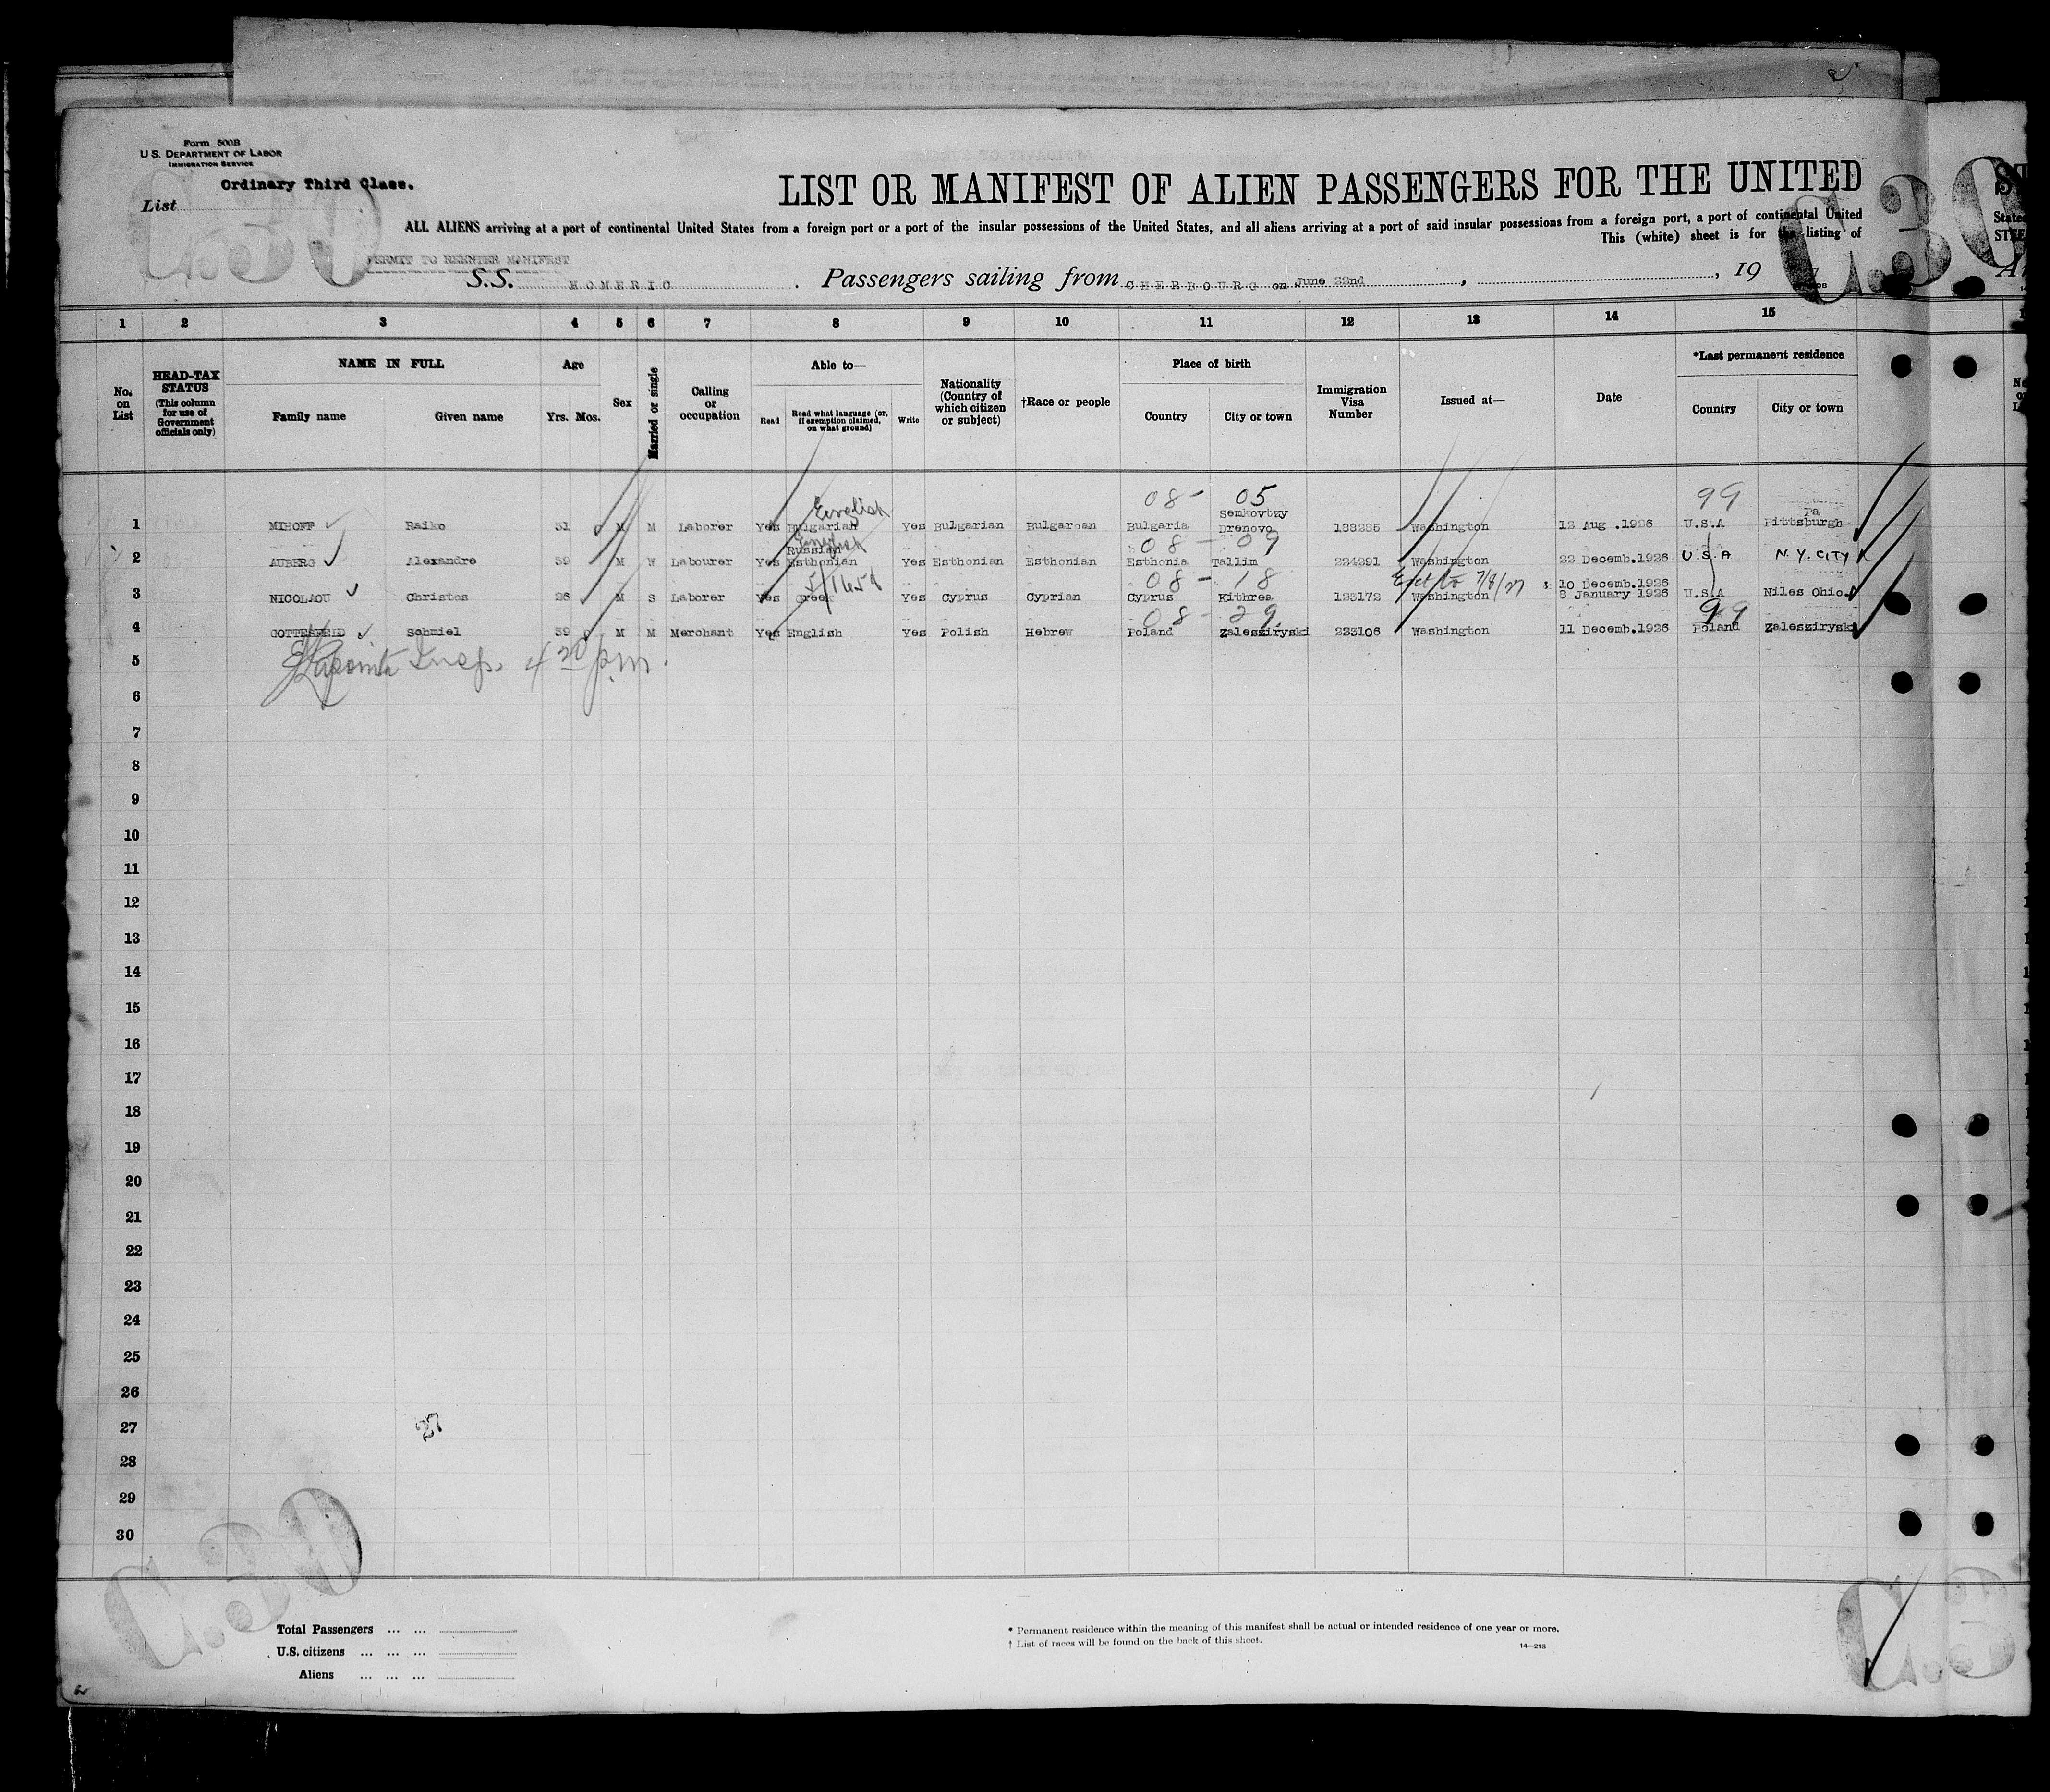 Form 500B
U.S. DEPARTMENT OF LABOR
IMMIGRATION SERVICE
Ordinary Third Class.
List
LIST OR MANIFEST OF ALIEN PASSENGERS FOR THE UNITED
ALL ALIENS arriving at a port of continental United States from a foreign port or a port of the insular possessions of the United States, and all aliens arriving at a port of said insular possessions from a foreign port, a port of continental United
This (white) sheet is for the listing of
PERMIT TO REENTER MANIFEST
S.S. HOMERIC. Passengers sailing from CHERBOURG on June 22nd, 19
1 2 3 4 5 6 7 8 9 10 11 12 13 14 15
No. on List
HEAD-TAX STATUS (This column for use of Government officials only)
NAME IN FULL
Family name Given name
Age
Yrs. Mos.
Sex
Married or single
Calling or occupation
Able to—
Read Read what language (or, if exemption claimed, on what ground) Write
Nationality (Country of which citizen or subject)
†Race or people
Place of birth
Country City or town
Immigration Visa Number
Issued at—
Date
*Last permanent residence
Country City or town
08- 05 99
English Semkovtzy Pa
1 MIHOFF Raiko 51 M M Laborer Yes Bulgarian Yes Bulgarian Bulgaroan Bulgaria Drenovo 188285 Washington 12 Aug .1926 U.S.A Pittsburgh
English 08 - 09
Russian
2 AUBERG Alexandre 59 M W Labourer Yes Esthonian Yes Esthonian Esthonian Esthonia Tallim 224291 Washington 22 Decemb.1926 U.S.A N.Y. CITY
08 - 18 Ext to 7/8/27 10 Decemb.1926
3 NICOLAOU Christos 26 M S Laborer Yes Greek Yes Cyprus Cyprian Cyprus Kithrea 123172 Washington 8 January 1926 U.S.A Niles Ohio.
08 - 29 99
4 GOTTESFEID Schmiel 59 M M Merchant Yes English Yes Polish Hebrew Poland Zalesziryski 223106 Washington 11 Decemb.1926 Poland Zalesziryski
5 Insp. 4 20 p.m.
6
7
8
9
10
11
12
13
14
15
16
17
18
19
20
21
22
23
24
25
26
27
28
29
30
27
Total Passengers ... ...
U.S. citizens ... ... ...
Aliens ... ... ...
* Permanent residence within the meaning of this manifest shall be actual or intended residence of one year or more.
† List of races will be found on the back of this sheet.
14—213